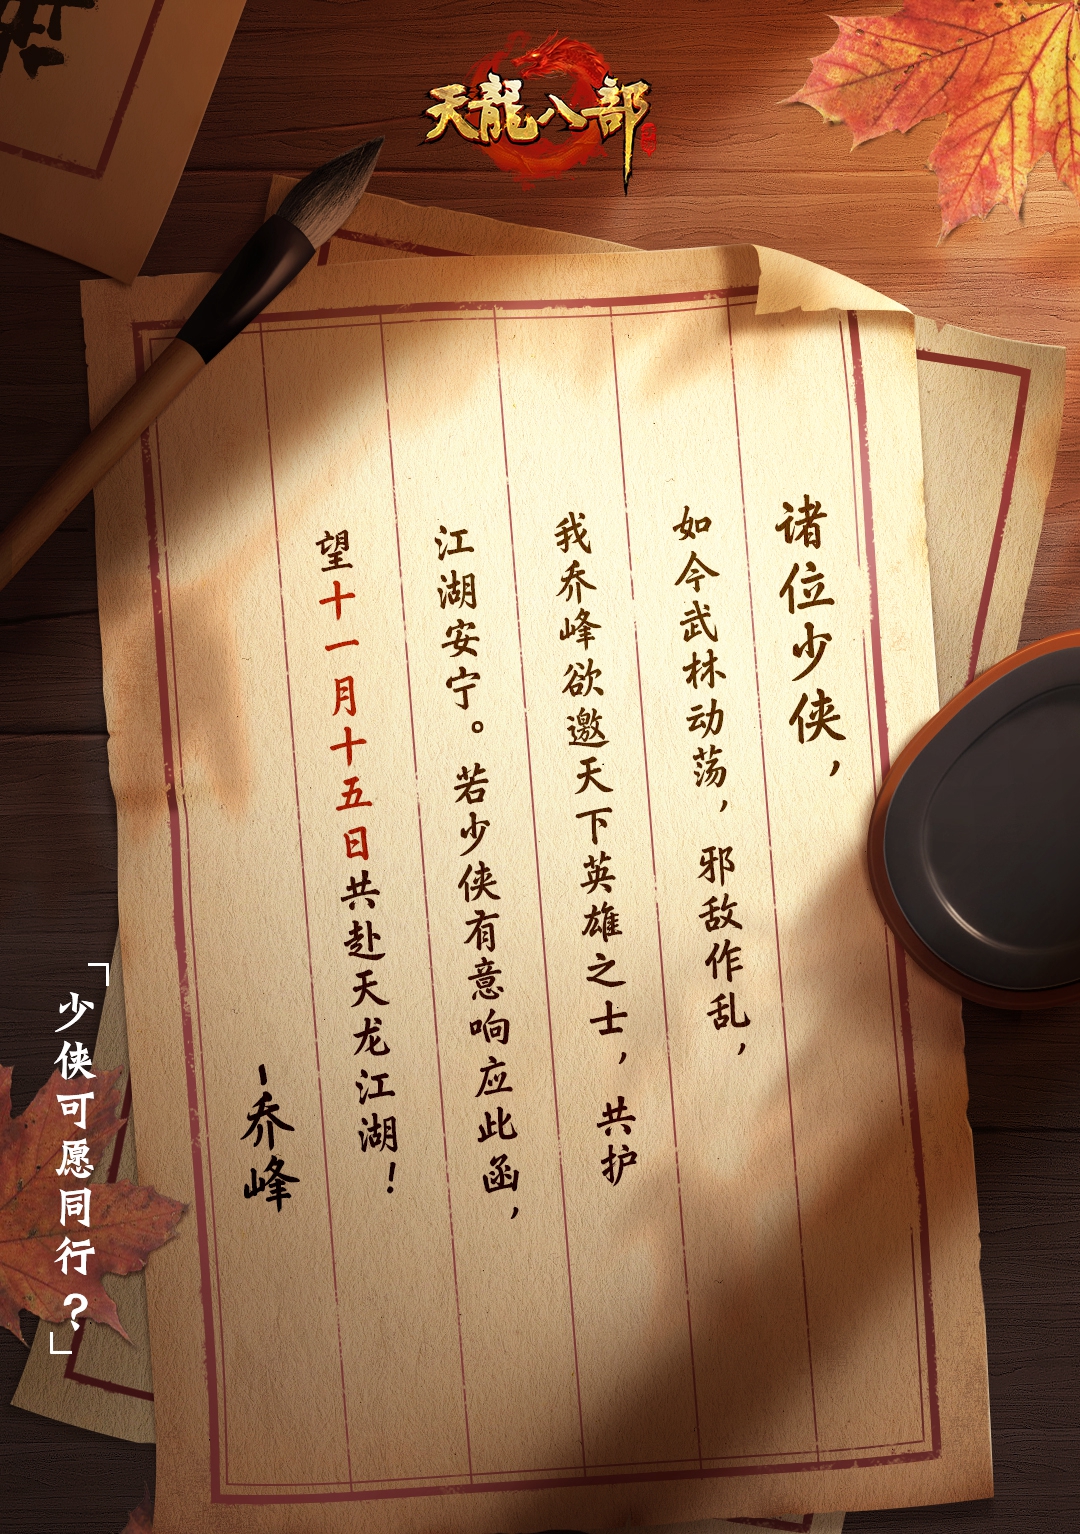 天龍八部
诸位少侠，
如今武林动荡，邪敌作乱，
我乔峰欲邀天下英雄之士，共护
江湖安宁。若少侠有意响应此函，
望十一月十五日共赴天龙江湖！
-乔峰
「少侠可愿同行？」